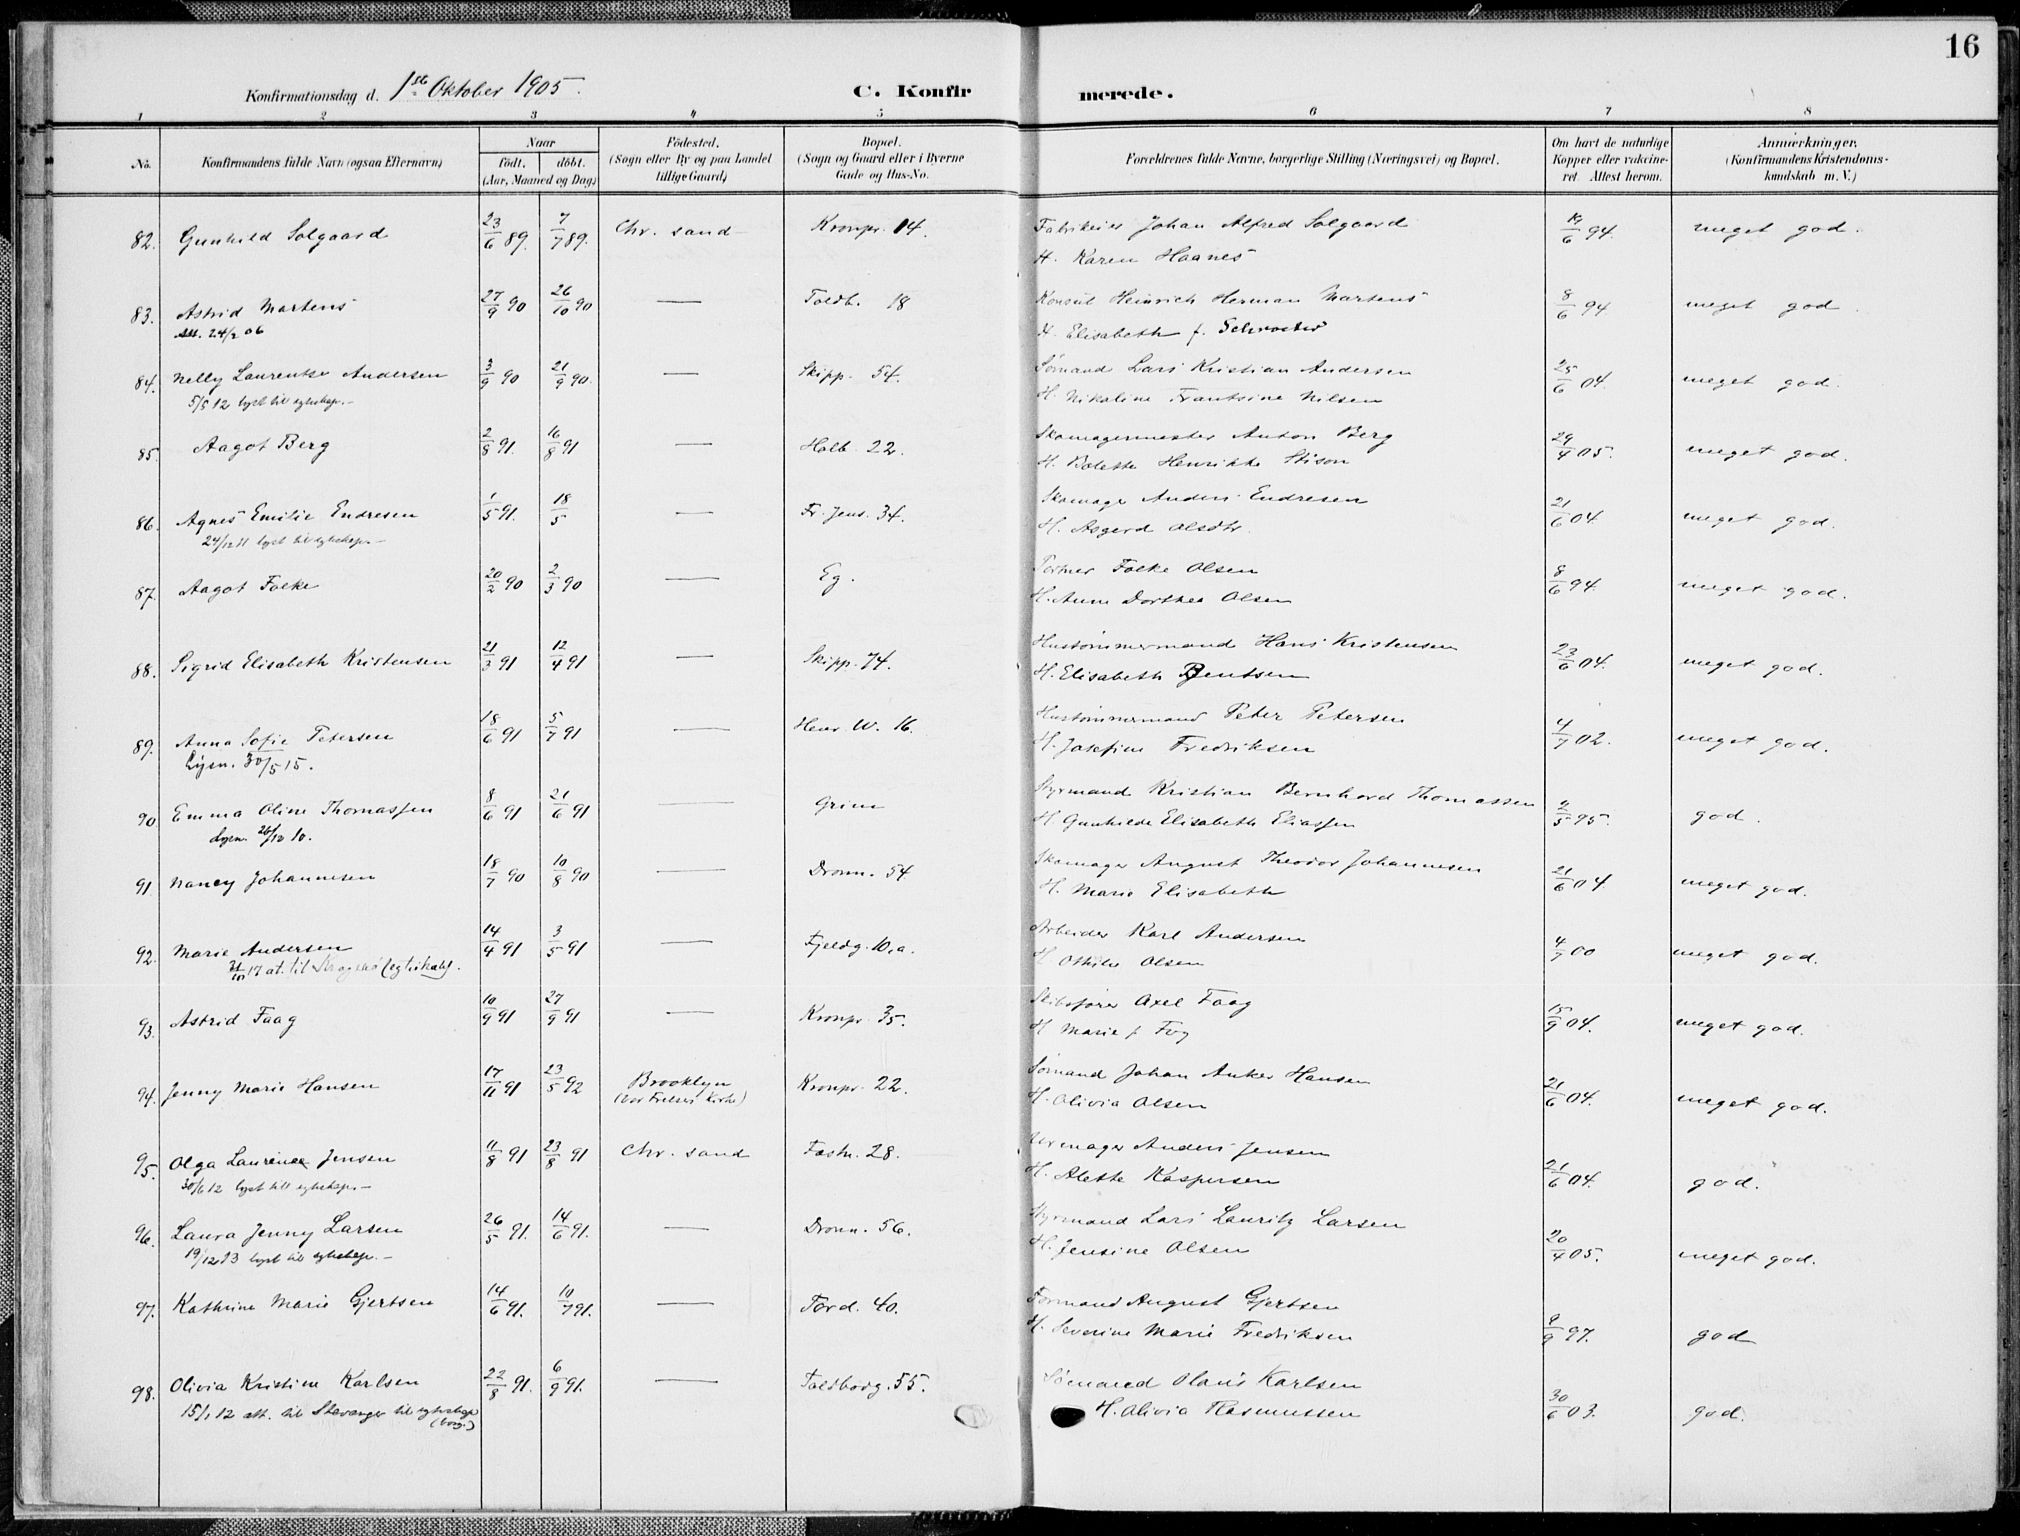 16
Konfirmationsdag d. 1ste Oktober 1905. C. Konfirmerede.
1 2 3 4 5 6 7 8
No. Konfirmandens fulde Navn (ogsaa Efternavn) Naar födt. döbt. (Aar, Maaned og Dag) Födested. (Sogn eller By og paa Landet tillige Gaard) Bopæl. (Sogn og Gaard eller i Byerne Gade og Hus-No. Forældrenes fulde Navne, borgerlige Stilling (Næringsvei) og Bopæl. Om havt de naturlige Kopper eller vakcineret. Attest herom. Anmærkninger. (Konfirmandens Kristendomskundskab m. V.)
82. Gunhild Solgaard 23/6 89. 7/7 89. Chr. sand Kronpr. 14. Fabrikeier Johan Alfred Solgaard 14/6 94. meget god.
H. Karen Haanes
83. Astrid Martens 27/9 90 26/10 90 — Toldb. 18 Konsul Heinrich Herman Martens 8/6 94 meget god.
Att. 24/2 06 H. Elisabeth f. Schrøeter
84. Nelly Laurentse Andersen 3/9 90 21/9 90. — Skipp. 54. Sømand Lars Kristian Andersen 25/6 04. meget god.
5/5 12 lyst til egteskap.- H. Nikoline Frantsine Nilsen
85. Aagot Berg 2/8 91. 16/8 91 — Holb. 22. Skomagermester Anton Berg 29/4 05. meget god.
H. Bolette Henrikke Stison
86. Agnes Emilie Endresen 1/5 91. 18/5 — Fr. Jens. 34. Skomager Anders Endresen 21/6 04 meget god.
24/12 11 lyst til egteskap.- H. Asgerd Olsdtr.
87. Aagot Folke 20/2 90 2/3 90 — Eg. Portner Folke Olsen 8/6 94. meget god.
H. Anne Dorthea Olsen
88. Sigrid Elisabeth Kristensen 21/3 91 12/4 91 — Skipp. 74. Hustømmermand Hans Kristensen 23/6 04. meget god.
H. Elisabeth Bentsen
89. Anna Sofie Petersen 18/6 91 5/7 91 — Henr. W. 16. Hustømmermand Peter Petersen 4/7 02. meget god.
Lysn. 30/5 15. H. Josefine Fredriksen
90 Emma Oline Thomassen 8/6 91 21/6 91 — Grim Styrmand Kristian Bernhard Thomassen 2/5 95. god.
Lysn. 26/12 10. H. Gunhilde Elisabeth Eliassen
91 Nancy Johannesen 18/7 90 10/8 90 — Dronn. 54 Skomager August Theodor Johannesen 21/6 04. meget god.
H. Marie Elisabeth
92. Marie Andersen 14/4 91 3/5 91 — Fjeldg. 10,a. Arbeider Karl Andersen 4/7 00 meget god.
21/10 17 at. til Kragerø (egteskab). H. Othilie Olsen
93. Astrid Faag 10/9 91 27/9 91 — Kronpr. 35. Skibsfører Axel Faag 15/9 04. meget god.
H Marie f Fog
94. Jenny Marie Hansen 17/11 91 23/5 92 Brooklyn Kronpr. 22. Sømand Johan Anker Hansen 21/6 04. meget god.
(Vor Frelsers Kirke) H. Olivia Olsen
95. Olga Laurence Jensen 11/8 91 23/8 91 Chr. sand Fastn. 28. Urmager Anders Jensen 21/6 04. god.
30/6 12 lyst till egteskap.- H. Alette Kaspersen
96. Laura Jenny Larsen 26/5 91. 14/6 91. — Dronn. 56. Styrmand Lars Lauritz Larsen 20/4 05. meget god.
19/12 13 lyst til egteskap.- H. Jensine Olsen
97. Kathrine Marie Gjertsen 14/6 91. 10/7 91. — Tord. 40. Formand August Gjertsen 9/9 97. god
H. Severine Marie Fredriksen
98. Olivia Kristine Karlsen 22/8 91. 6/9 91. — Toldbodg. 55. Sømand Olaus Karlsen 30/6 03. god.
15/1 12 att. til Stavanger til egteskap (borg.) H. Olivia Rasmussen